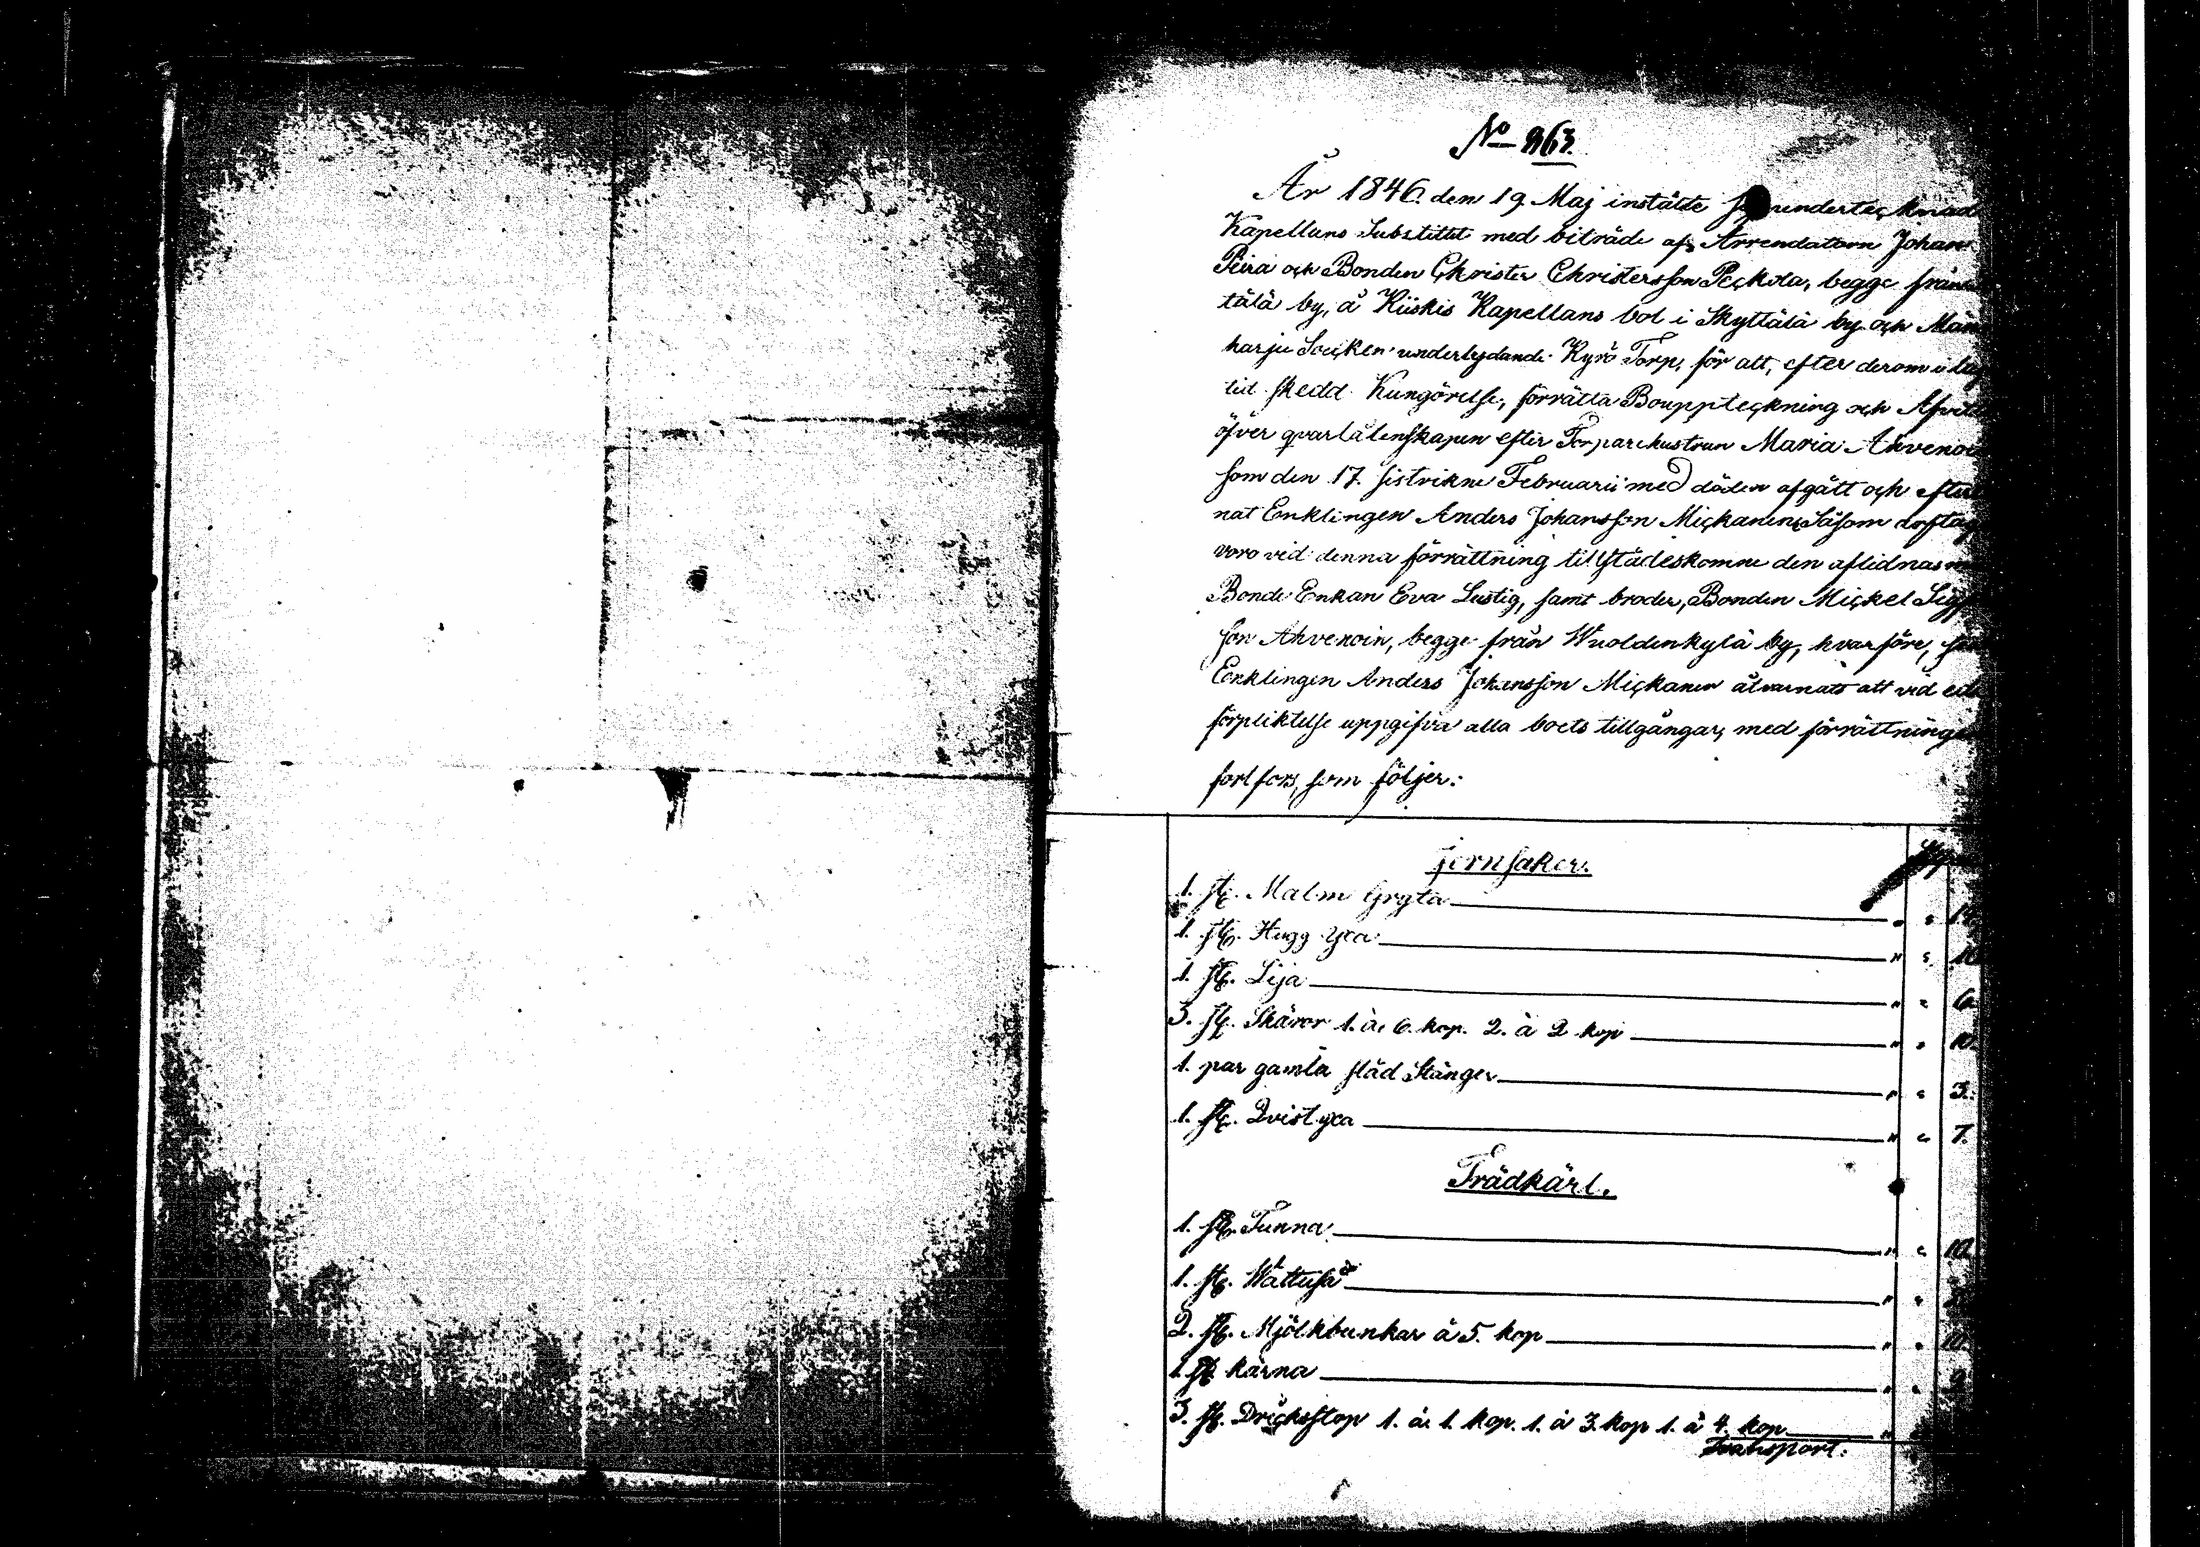 No 963.
År 1846. den 19 Maj instälde undertecknad
Kapellans Substitut med biträde af Arrendatorn Johan
Peira och Bonden Christer Christersson Peckola, begge från
tälä by, å Kiiskis Kapellans bol i Skyttälä by och Män
harju Socken underlydande Kyrö Torp, för att, efter derom i
tid skedd Kungörelse, förrätta Bouppteckning och
öfver qvarlåtenskapen efter Torparehustrun Maria Ahvenoin
som den 17. sistvikne Februarii med döden afgått och efter
nat Enklingen Anders Johansson Mickanen. Såsom
voro vid denna förrättning tillstädeskomne den aflidnas
Bonde Enkan Eva Lustig, samt broder, Bonden Mickel Sigf
son Ahvenoin, begge från Wuoldenkylä by, hvarföre,
Enklingen Anders Johansson Mickanen alvarnats att vid
förpliktelse uppgifva alla boets tillgångar, med förrättningen
fortfors, som följer:
Jernsaker.
1. st. Malm Gryta " "
1. st. Hugg yxa " "
1. st. Lija " " 6.
3. st. Skäror 1. à 6. kop. 2. à 2 kop " " 10.
1. par gamla släd Stänger " " 3.
1. st. Qvist yxa " " 7.
Trädkärl.
1. st. Tunna " " 10.
1. st. Wattuså " "
2. st. Mjölkbunkar à 5. kop " " 10.
1. st kärna " "
3. st. Dricksstop 1. à 1. kop. 1. à 3. kop 1. à 4. kop "
Transport.